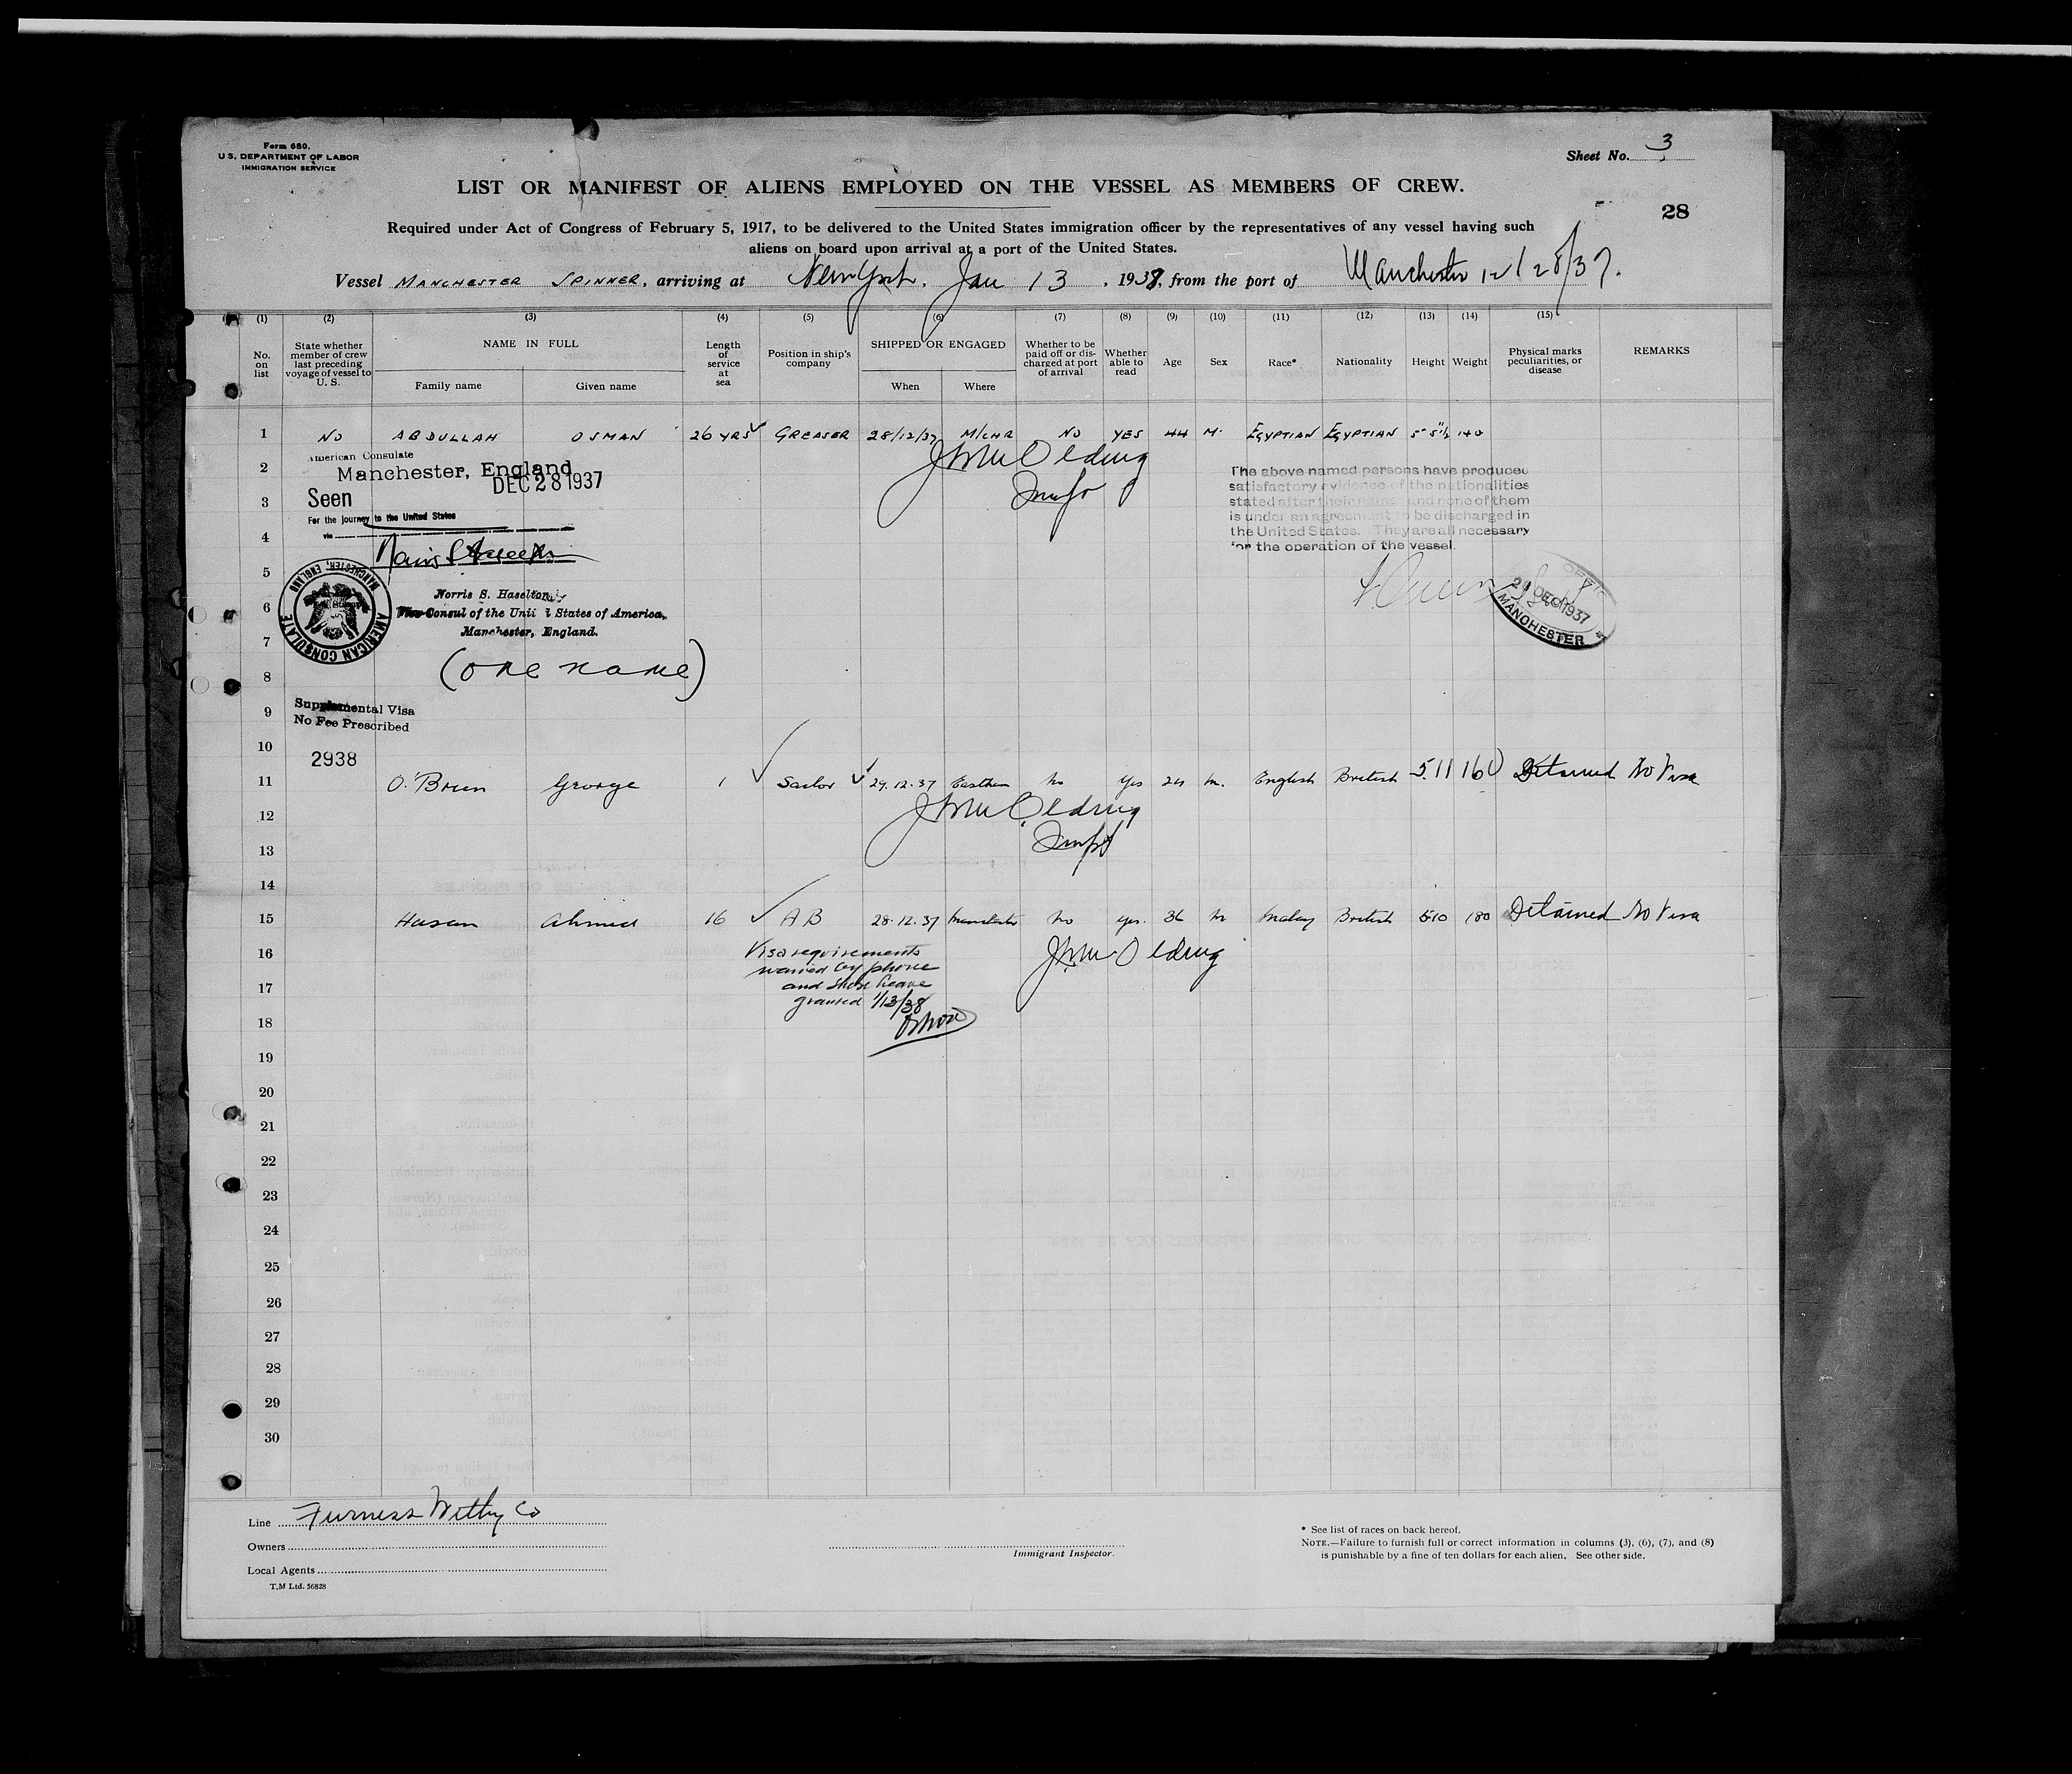 Form 680.
U. S. DEPARTMENT OF LABOR
IMMIGRATION SERVICE
Sheet No. 3
LIST OR MANIFEST OF ALIENS EMPLOYED ON THE VESSEL AS MEMBERS OF CREW.
28
Required under Act of Congress of February 5, 1917, to be delivered to the United States immigration officer by the representatives of any vessel having such
aliens on board upon arrival at a port of the United States.
Vessel MANCHESTER SPINNER, arriving at New York, Jan 13, 1938, from the port of Manchester 12/28/37.
(1) (2) (3) (4) (5) (6) (7) (8) (9) (10) (11) (12) (13) (14) (15)
No. on list
State whether member of crew last preceding voyage of vessel to U. S.
NAME IN FULL
Family name
Given name
Length of service at sea
Position in ship's company
SHIPPED OR ENGAGED
When
Where
Whether to be paid off or discharged at port of arrival
Whether able to read
Age
Sex
Race*
Nationality
Height
Weight
Physical marks peculiarities, or disease
REMARKS
1 NO ABDULLAH OSMAN 26 YRS GREASER 28/12/37 M/CHR NO YES 44 M. EGYPTIAN EGYPTIAN 5' 5½ 140
2
3
4
5
6
7
8
9
10
American Consulate
Manchester, England
DEC 28 1937
Seen
For the journey to the United States
via
Norris S. Haselton
Vice Consul of the United States of America,
Manchester, England.
AMERICAN CONSULATE
MANCHESTER, ENGLAND
(one name)
Supplemental Visa
No Fee Prescribed
2938
The above named persons have produced
satisfactory evidence of the nationalities
stated after their names and none of them
is under an agreement to be discharged in
the United States. They are all necessary
for the operation of the vessel.
DEC 1937
MANCHESTER
11 O'Brien George 1 Sailor 29.12.37 Eastham No Yes 24 M. English British 5.11 160 Detained No Visa
12
13
14
15 Hasan Ahmed 16 AB 28.12.37 Manchester No yes. 36 M Malay British 5.10 180 Detained No Visa
16
17
18
Visa requirements
waived by phone
and shore leave
granted 1/13/38
19
20
21
22
23
24
25
26
27
28
29
30
Line Furness Withy Co
Owners
Local Agents
T.M Ltd. 56828
Immigrant Inspector.
* See list of races on back hereof.
NOTE.—Failure to furnish full or correct information in columns (3), (6), (7), and (8)
is punishable by a fine of ten dollars for each alien. See other side.